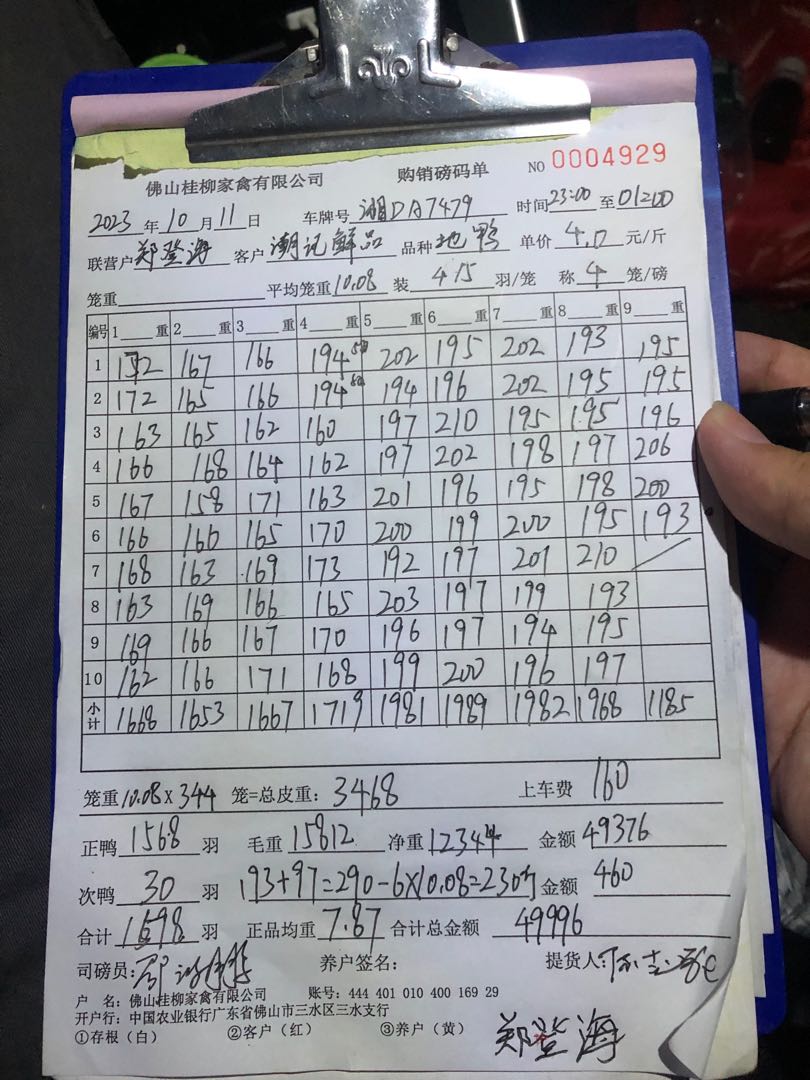 佛山桂柳家禽有限公司 购销磅码单 NO 0004929
2023 年 10 月 11 日 车牌号 湘DA7479 时间 23:00 至 01:200
联营户 郑登海 客户 潮记鲜品 品种 地鸭 单价 4.0 元/斤
笼重 平均笼重 10.08 装 4/5 羽/笼 称 4 笼/磅
编号 1 重 2 重 3 重 4 重 5 重 6 重 7 重 8 重 9 重
1 172 167 166 194 202 195 202 193 195
2 172 165 166 194 194 196 202 195 195
3 163 165 162 160 197 210 195 195 196
4 166 168 164 162 197 202 198 197 206
5 167 158 171 163 201 196 195 198 200
6 166 166 165 170 200 199 200 195 193
7 168 163 169 173 192 197 201 210
8 163 169 166 165 203 197 199 193
9 169 166 167 170 196 197 194 195
10 162 166 171 168 199 200 196 197
小计 1668 1653 1667 1719 1981 1989 1982 1968 1185
笼重 10.08 X 344 笼=总皮重: 3468 上车费 160
正鸭 1568 羽 毛重 15812 净重 12344 金额 49376
次鸭 30 羽 193+97=290-6×10.08=230斤 金额 460
合计 1598 羽 正品均重 7.87 合计总金额 49996
司磅员: 养户签名: 提货人:
户 名: 佛山桂柳家禽有限公司 账号: 444 401 010 400 169 29
开户行: 中国农业银行广东省佛山市三水区三水支行
①存根(白) ②客户(红) ③养户(黄) 郑登海